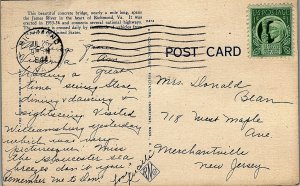 This beautiful concrete bridge, nearly a mile long, spans
the James River in the heart of Richmond, Va. It was
erected in and connects several national highways.
POST CARD
Am
having a great
time seeing Steve
dining & dancing &
sightseeing. Visited
Williamsburg yesterday
which was very
picturesque. Miss
the Gloucester sea
breezes
remember me to Don.
Mrs. Donald
Bean
718 West Maple
Ave.
Merchantville
New Jersey